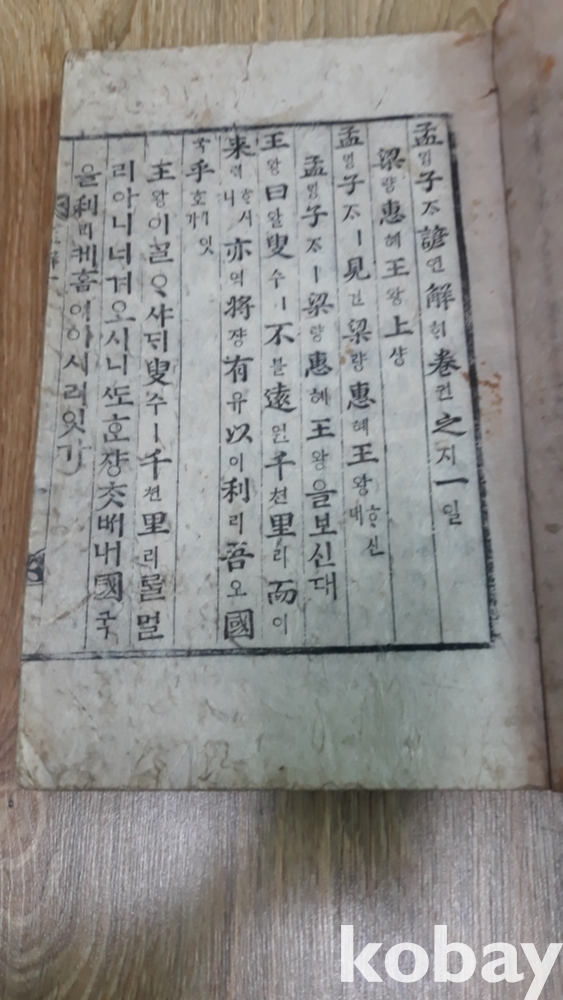 孟ᄆᆡᆼ子ᄌᆞ諺언解ᄒᆡ卷권之지一일
梁량惠혜王왕上샹
孟ᄆᆡᆼ子ᄌᆞㅣ見견梁량惠혜王왕ᄒᆞ신대
孟ᄆᆡᆼ子ᄌᆞㅣ梁량惠혜王왕을보신대
王왕曰왈叟수ㅣ不블遠원千쳔里리而이
來ᄅᆡᄒᆞ시니亦역將쟝有유以이利리吾오國
국乎호잇가
王왕이ᄀᆞᆯᄋᆞ샤ᄃᆡ叟수ㅣ千쳔里리ᄅᆞᆯ멀
리아니너겨오시니ᄯᅩᄒᆞᆫ쟝ᄎᆞᆺᄡᅥ내國국
을利리케홈이이시리잇가
kobay